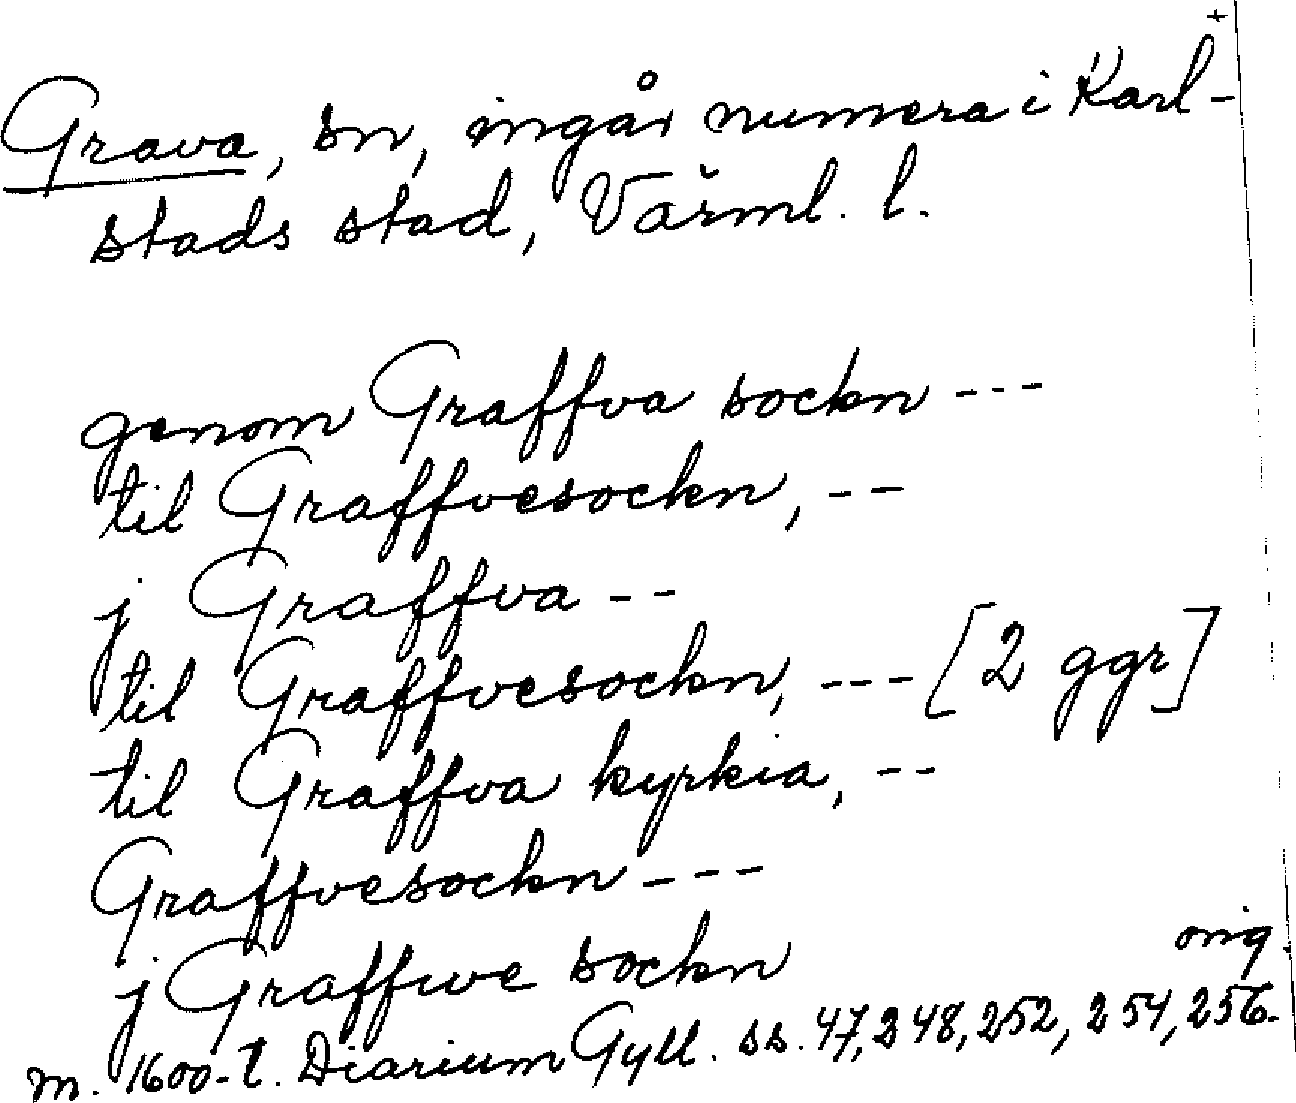 +
Grava, sn, ingår numera i Karl-
stads stad, Värml. l.
genom Graffva sockn ---
til Graffvesockn, --
j Graffva --
til Graffvesockn, --- [2 ggr]
til Graffva kyrkia, --
Graffvesockn ---
j Graffwe sockn
orig.
m. 1600-t. Diarium Gyll. ss. 47, 248, 252, 254, 256.